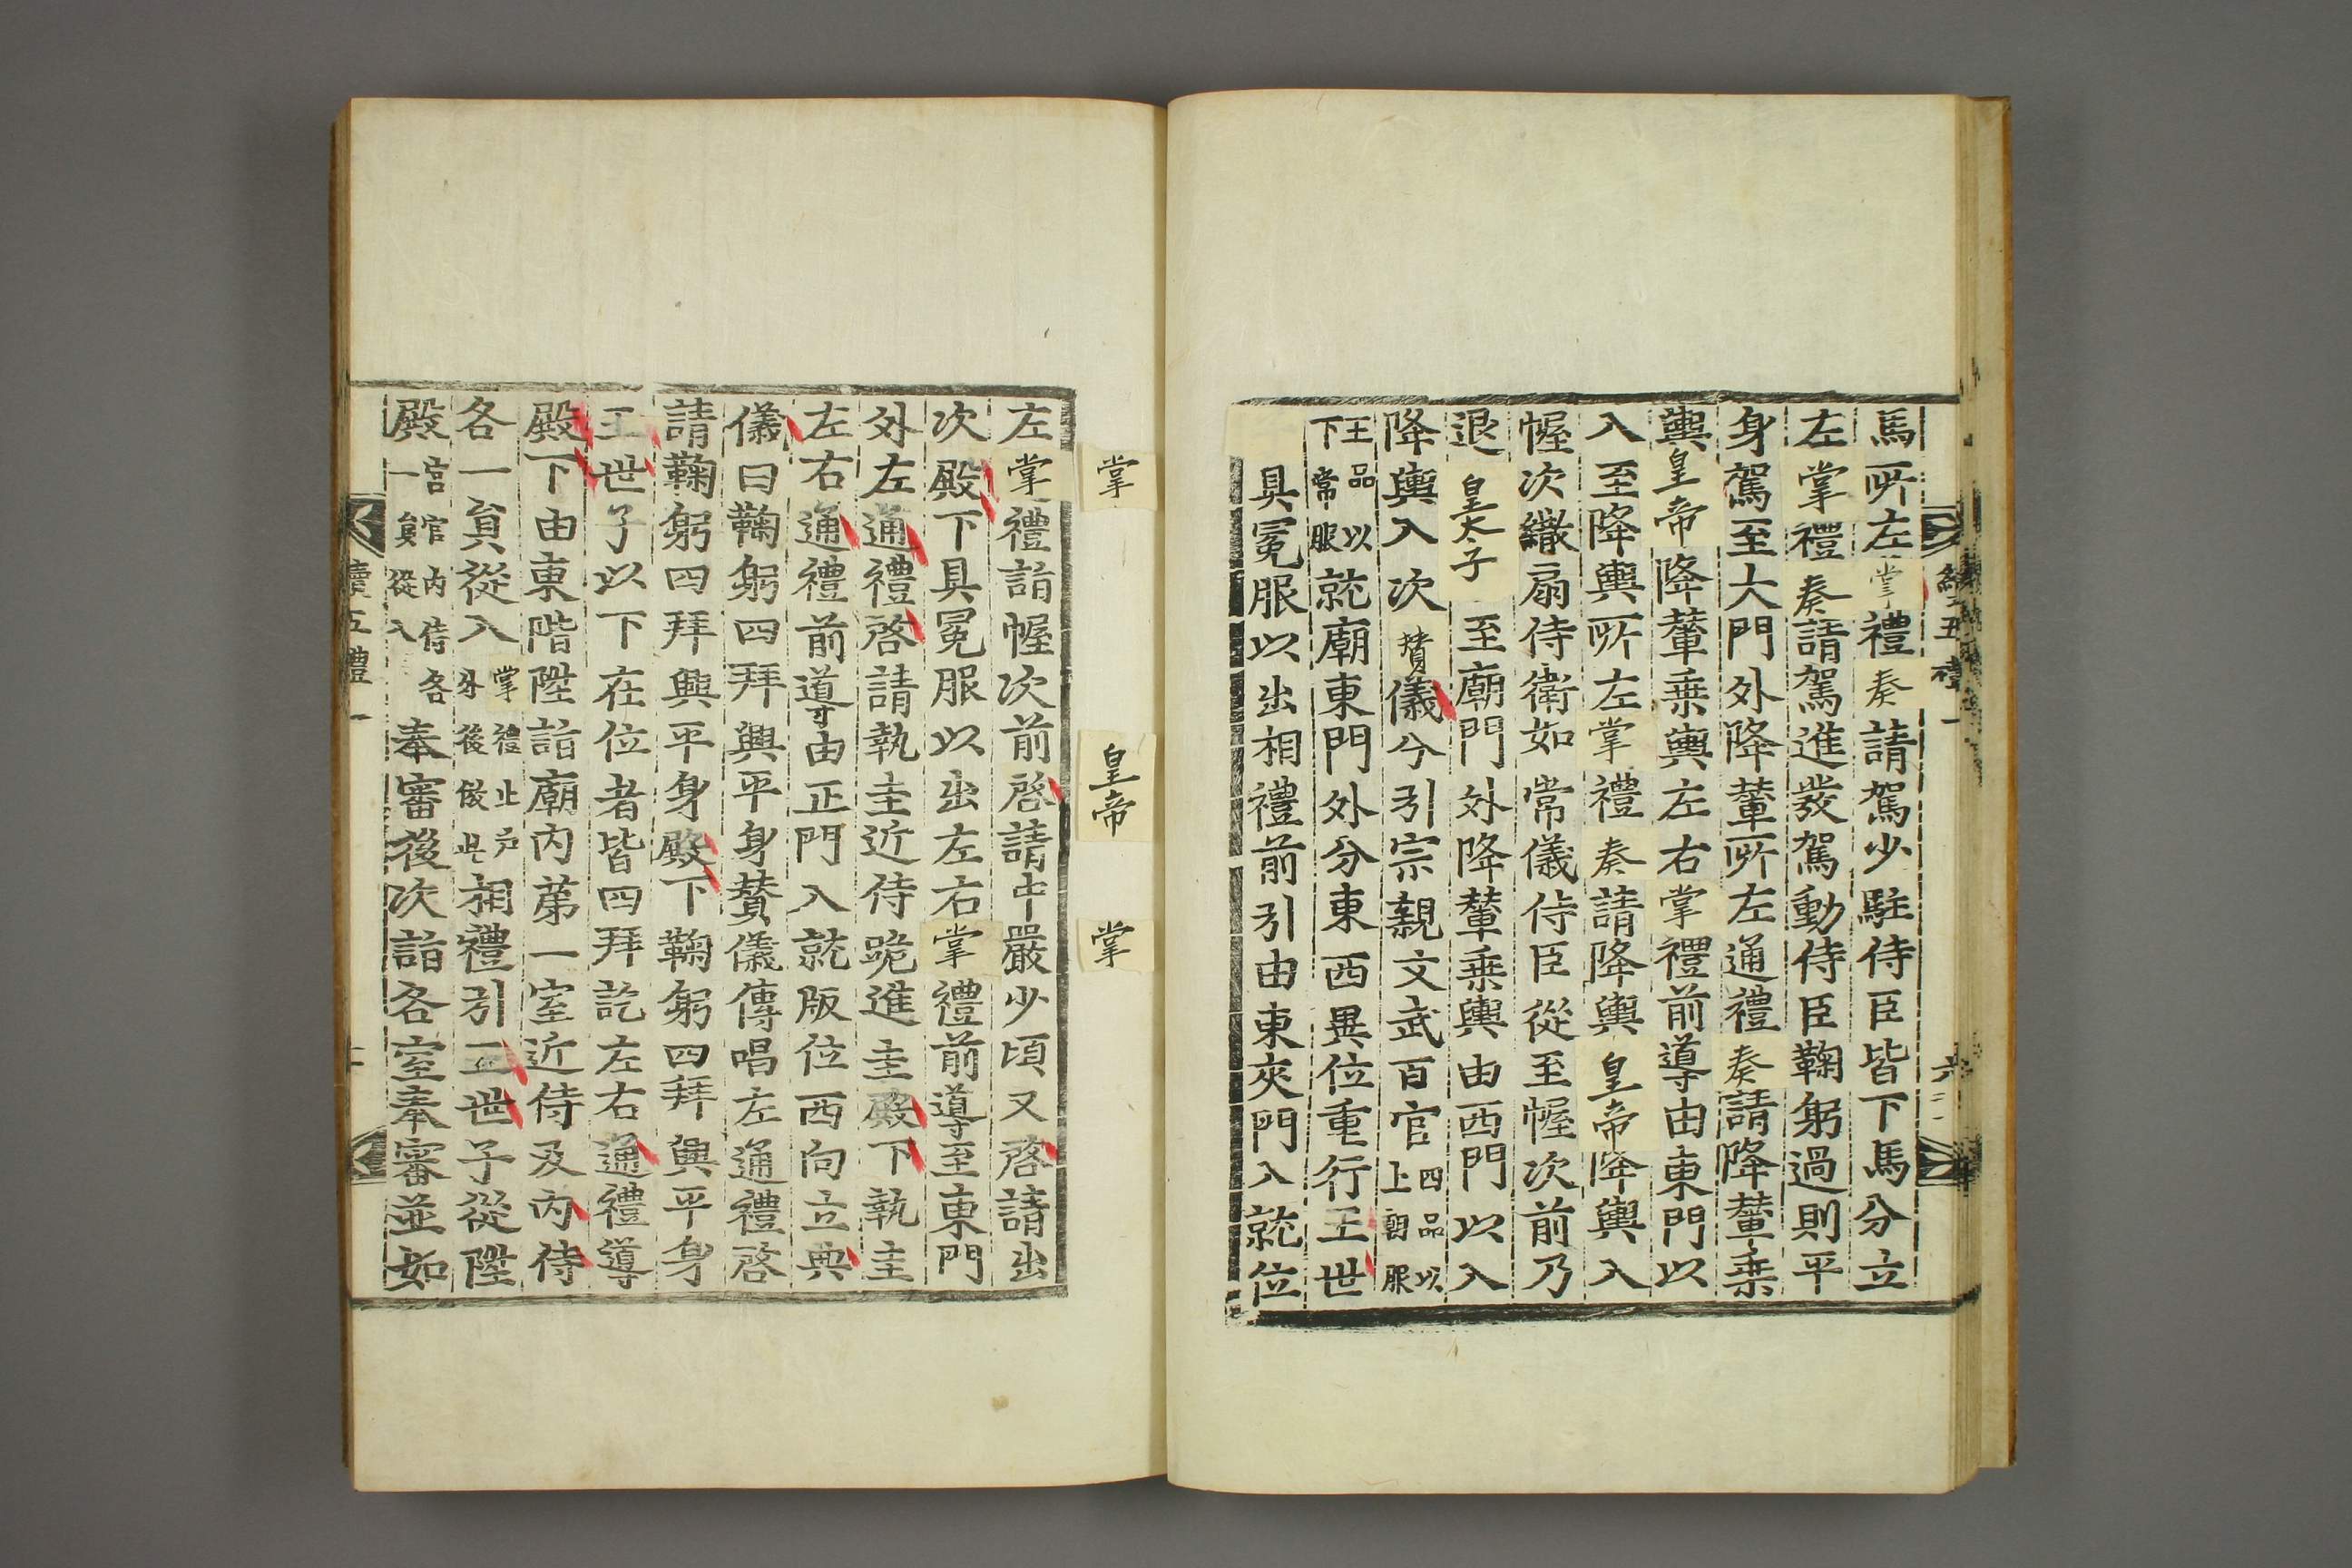 馬所左掌禮奏請駕少駐侍臣皆下馬分立
左掌禮奏請駕進發駕動侍臣鞠躬過則平
身駕至大門外降輦所左通禮奏請降輦乘
輿皇帝降輦乘輿左右掌禮前導由東門以
入至降輿所左掌禮奏請降輿皇帝降輿入
幄次繖扇侍衛如常儀侍臣從至幄次前乃
退皇太子至廟門外降輦乘輿由西門以入
降輿入次贊儀分引宗親文武百官四品以上朝服
王品以下常服就廟東門外分東西異位重行王世
具冕服以出相禮前引由東夾門入就位
續五禮一
六
掌
皇帝
掌
左掌禮詣幄次前啓請中嚴少頃又啓請出
次殿下具冕服以出左右掌禮前導至東門
外左通禮啓請執圭近侍跪進圭殿下執圭
左右通禮前導由正門入就版位西向立典
儀曰鞠躬四拜興平身贊儀傳唱左通禮啓
請鞠躬四拜興平身殿下鞠躬四拜興平身
王世子以下在位者皆四拜訖左右通禮導
殿下由東階陞詣廟內第一室近侍及內侍
各一員從入掌禮止戶外後倣此相禮引王世子從陞
殿宮官內侍各一員從入奉審後次詣各室奉審並如
續五禮一